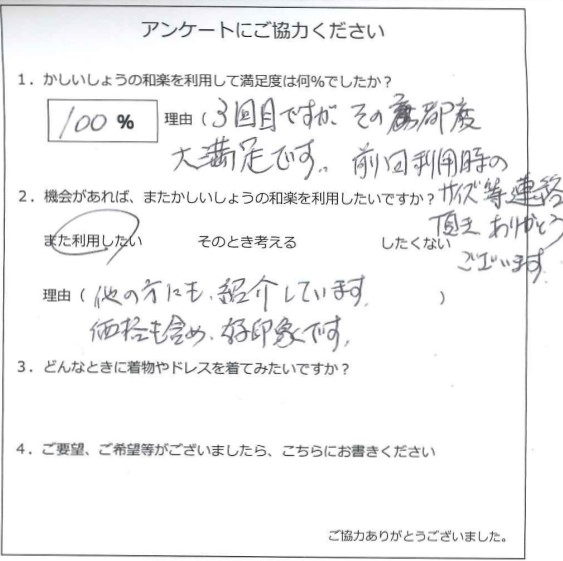 アンケートにご協力ください
1．かしいしょうの和楽を利用して満足度は何％でしたか？
100 %　理由（3回目ですが、その都度
大満足です。前回利用時の
サイズ等連絡
頂き ありがとう
ございます
2．機会があれば、またかしいしょうの和楽を利用したいですか？
また利用したい　そのとき考える　したくない
理由（他の方にも、紹介しています。）
価格も含め、好印象です。
3．どんなときに着物やドレスを着てみたいですか？
4．ご要望、ご希望等がございましたら、こちらにお書きください
ご協力ありがとうございました。